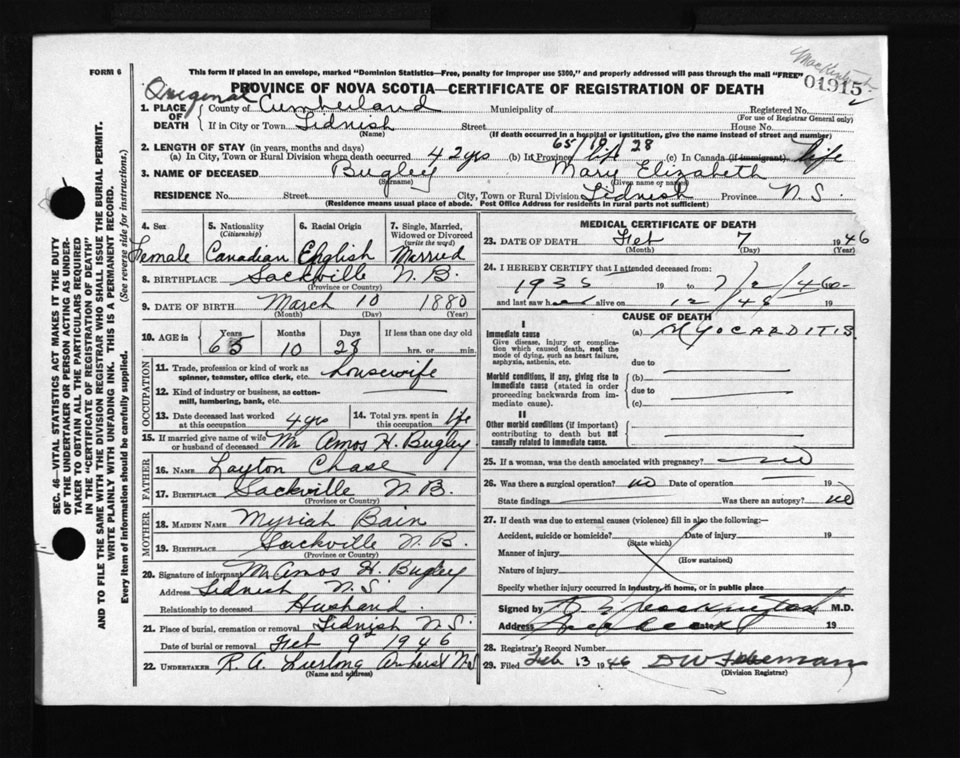 FORM 6
This form if placed in an envelope, marked "Dominion Statistics—Free, penalty for improper use $300," and properly addressed will pass through the mail "FREE"
01915
Original
PROVINCE OF NOVA SCOTIA—CERTIFICATE OF REGISTRATION OF DEATH
1. PLACE OF DEATH
County of Cumberland Municipality of Registered No.
(For use of Registrar General only)
If in City or Town Lidnish Street House No.
(Name) (If death occurred in a hospital or institution, give the name instead of street and number)
2. LENGTH OF STAY (in years, months and days) 65/10/28
(a) In City, Town or Rural Division where death occurred 42 yrs (b) In Province life (c) In Canada (if immigrant) life
3. NAME OF DECEASED Bugley Mary Elizabeth
(Surname) (Given name or names)
RESIDENCE No. Street City, Town or Rural Division Lidnish Province N.S.
(Residence means usual place of abode. Post Office Address for residents in rural parts not sufficient)
4. Sex Female
5. Nationality (Citizenship) Canadian
6. Racial Origin English
7. Single, Married, Widowed or Divorced (write the word) Married
8. BIRTHPLACE Sackville N.B.
(Province or Country)
9. DATE OF BIRTH March 10 1880
(Month) (Day) (Year)
10. AGE in Years 65 Months 10 Days 28 If less than one day old hrs. or min.
OCCUPATION
11. Trade, profession or kind of work as spinner, teamster, office clerk, etc. housewife
12. Kind of industry or business, as cotton-mill, lumbering, bank, etc.
13. Date deceased last worked at this occupation 4 yrs
14. Total yrs. spent in this occupation life
15. If married give name of wife or husband of deceased Mr Amos H. Bugley
FATHER
16. NAME Layton Chase
17. BIRTHPLACE Sackville N.B.
(Province or Country)
MOTHER
18. MAIDEN NAME Myriah Bain
19. BIRTHPLACE Sackville N.B.
(Province or Country)
20. Signature of informant Mr Amos H. Bugley
Address Lidnish N.S.
Relationship to deceased Husband
21. Place of burial, cremation or removal Lidnish N.S.
Date of burial or removal Feb 9th 1946
22. UNDERTAKER R. A. Amherst N.S.
(Name and address)
MEDICAL CERTIFICATE OF DEATH
23. DATE OF DEATH Feb 7 1946
(Month) (Day) (Year)
24. I HEREBY CERTIFY that I attended deceased from:
1935 19 to 7/2/46
and last saw h alive on 12/45 19
CAUSE OF DEATH
I
Immediate cause (a) MYOCARDITIS
Give disease, injury or complication which caused death, not the mode of dying, such as heart failure, asphyxia, asthenia, etc.
due to
Morbid conditions, if any, giving rise to immediate cause (stated in order proceeding backwards from immediate cause).
(b)
due to
(c)
II
Other morbid conditions (if important) contributing to death but not causally related to immediate cause.
25. If a woman, was the death associated with pregnancy? no
26. Was there a surgical operation? no Date of operation 19
State findings Was there an autopsy? no
27. If death was due to external causes (violence) fill in also the following:—
Accident, suicide or homicide? Date of injury 19
(State which)
Manner of injury
(How sustained)
Nature of injury
Specify whether injury occurred in industry, in home, or in public place
Signed by M.D.
Address Date 19
28. Registrar's Record Number
29. Filed Feb 13 1946
(Division Registrar)
SEC. 46—VITAL STATISTICS ACT MAKES IT THE DUTY
OF THE UNDERTAKER OR PERSON ACTING AS UNDER-
TAKER TO OBTAIN ALL THE PARTICULARS REQUIRED
IN THE "CERTIFICATE OF REGISTRATION OF DEATH"
AND TO FILE THE SAME WITH THE DIVISION REGISTRAR WHO SHALL ISSUE THE BURIAL PERMIT.
WRITE PLAINLY WITH UNFADING INK. THIS IS A PERMANENT RECORD.
Every item of information should be carefully supplied. (See reverse side for instructions.)